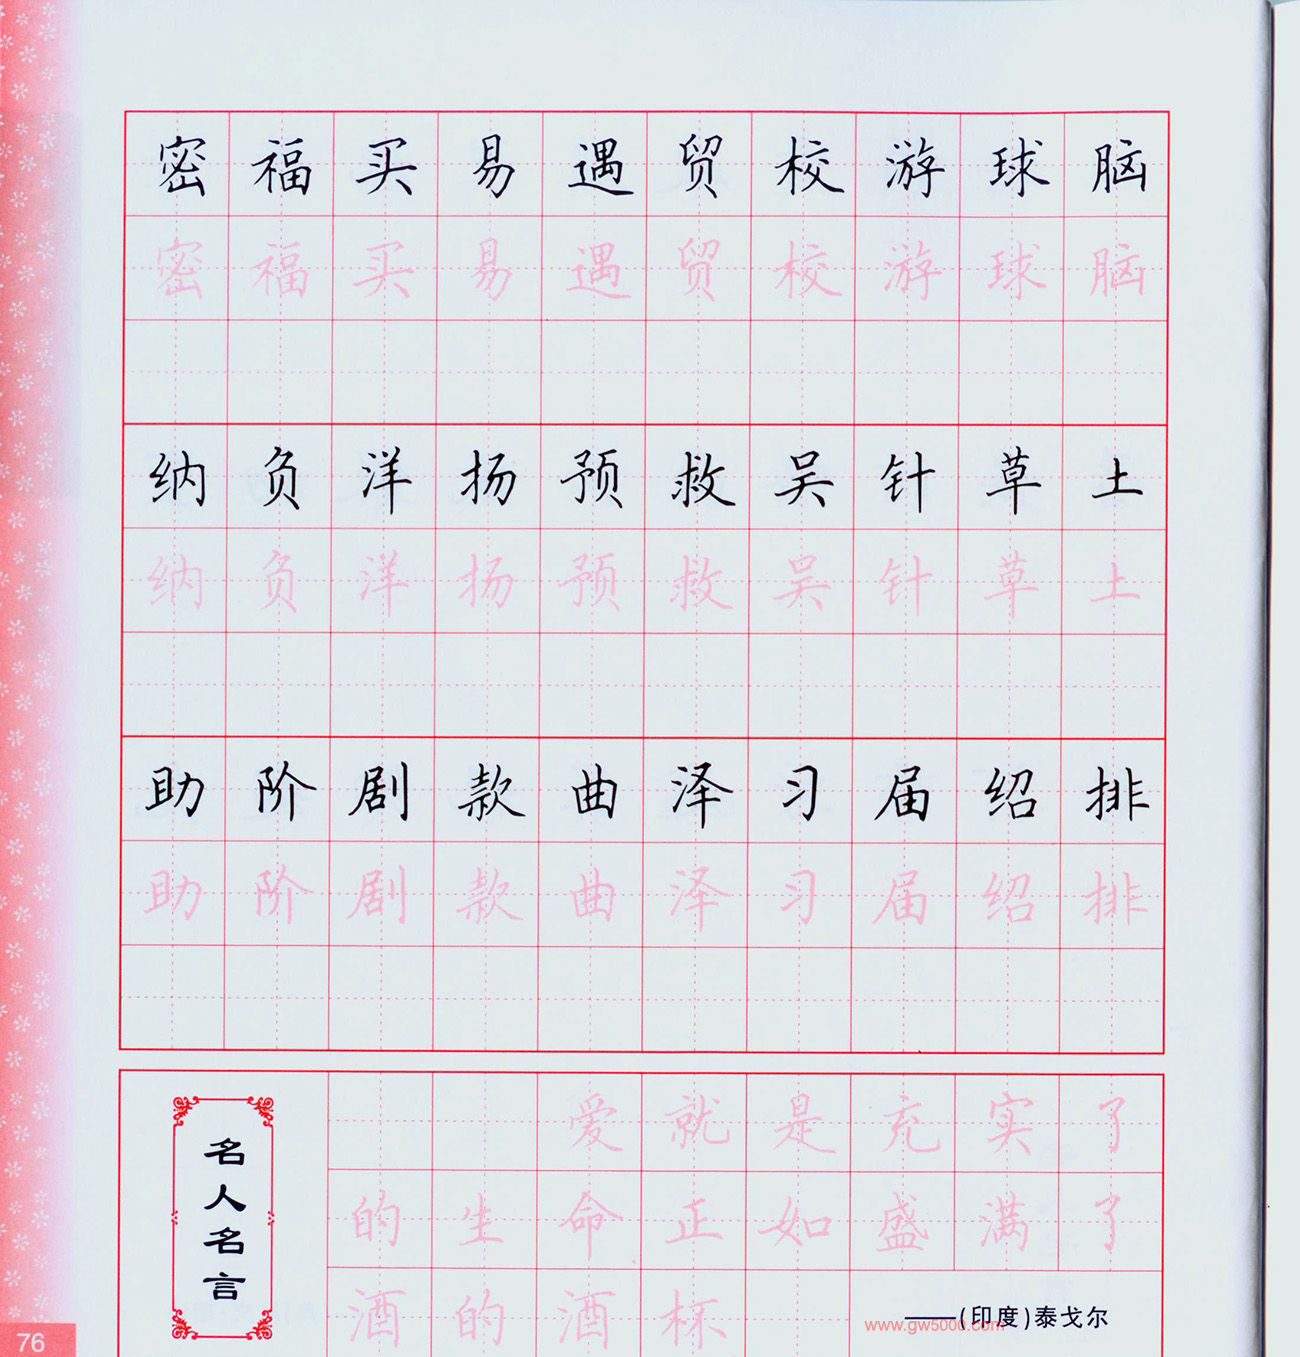 密福买易遇贸校游球脑
密福买易遇贸校游球脑
纳负洋扬预救吴针草土
纳负洋扬预救吴针草土
助阶剧款曲泽习届绍排
助阶剧款曲泽习届绍排
名人名言
爱就是充实了
的生命正如盛满了
酒的酒杯
——(印度)泰戈尔
www.gw5000.com
76